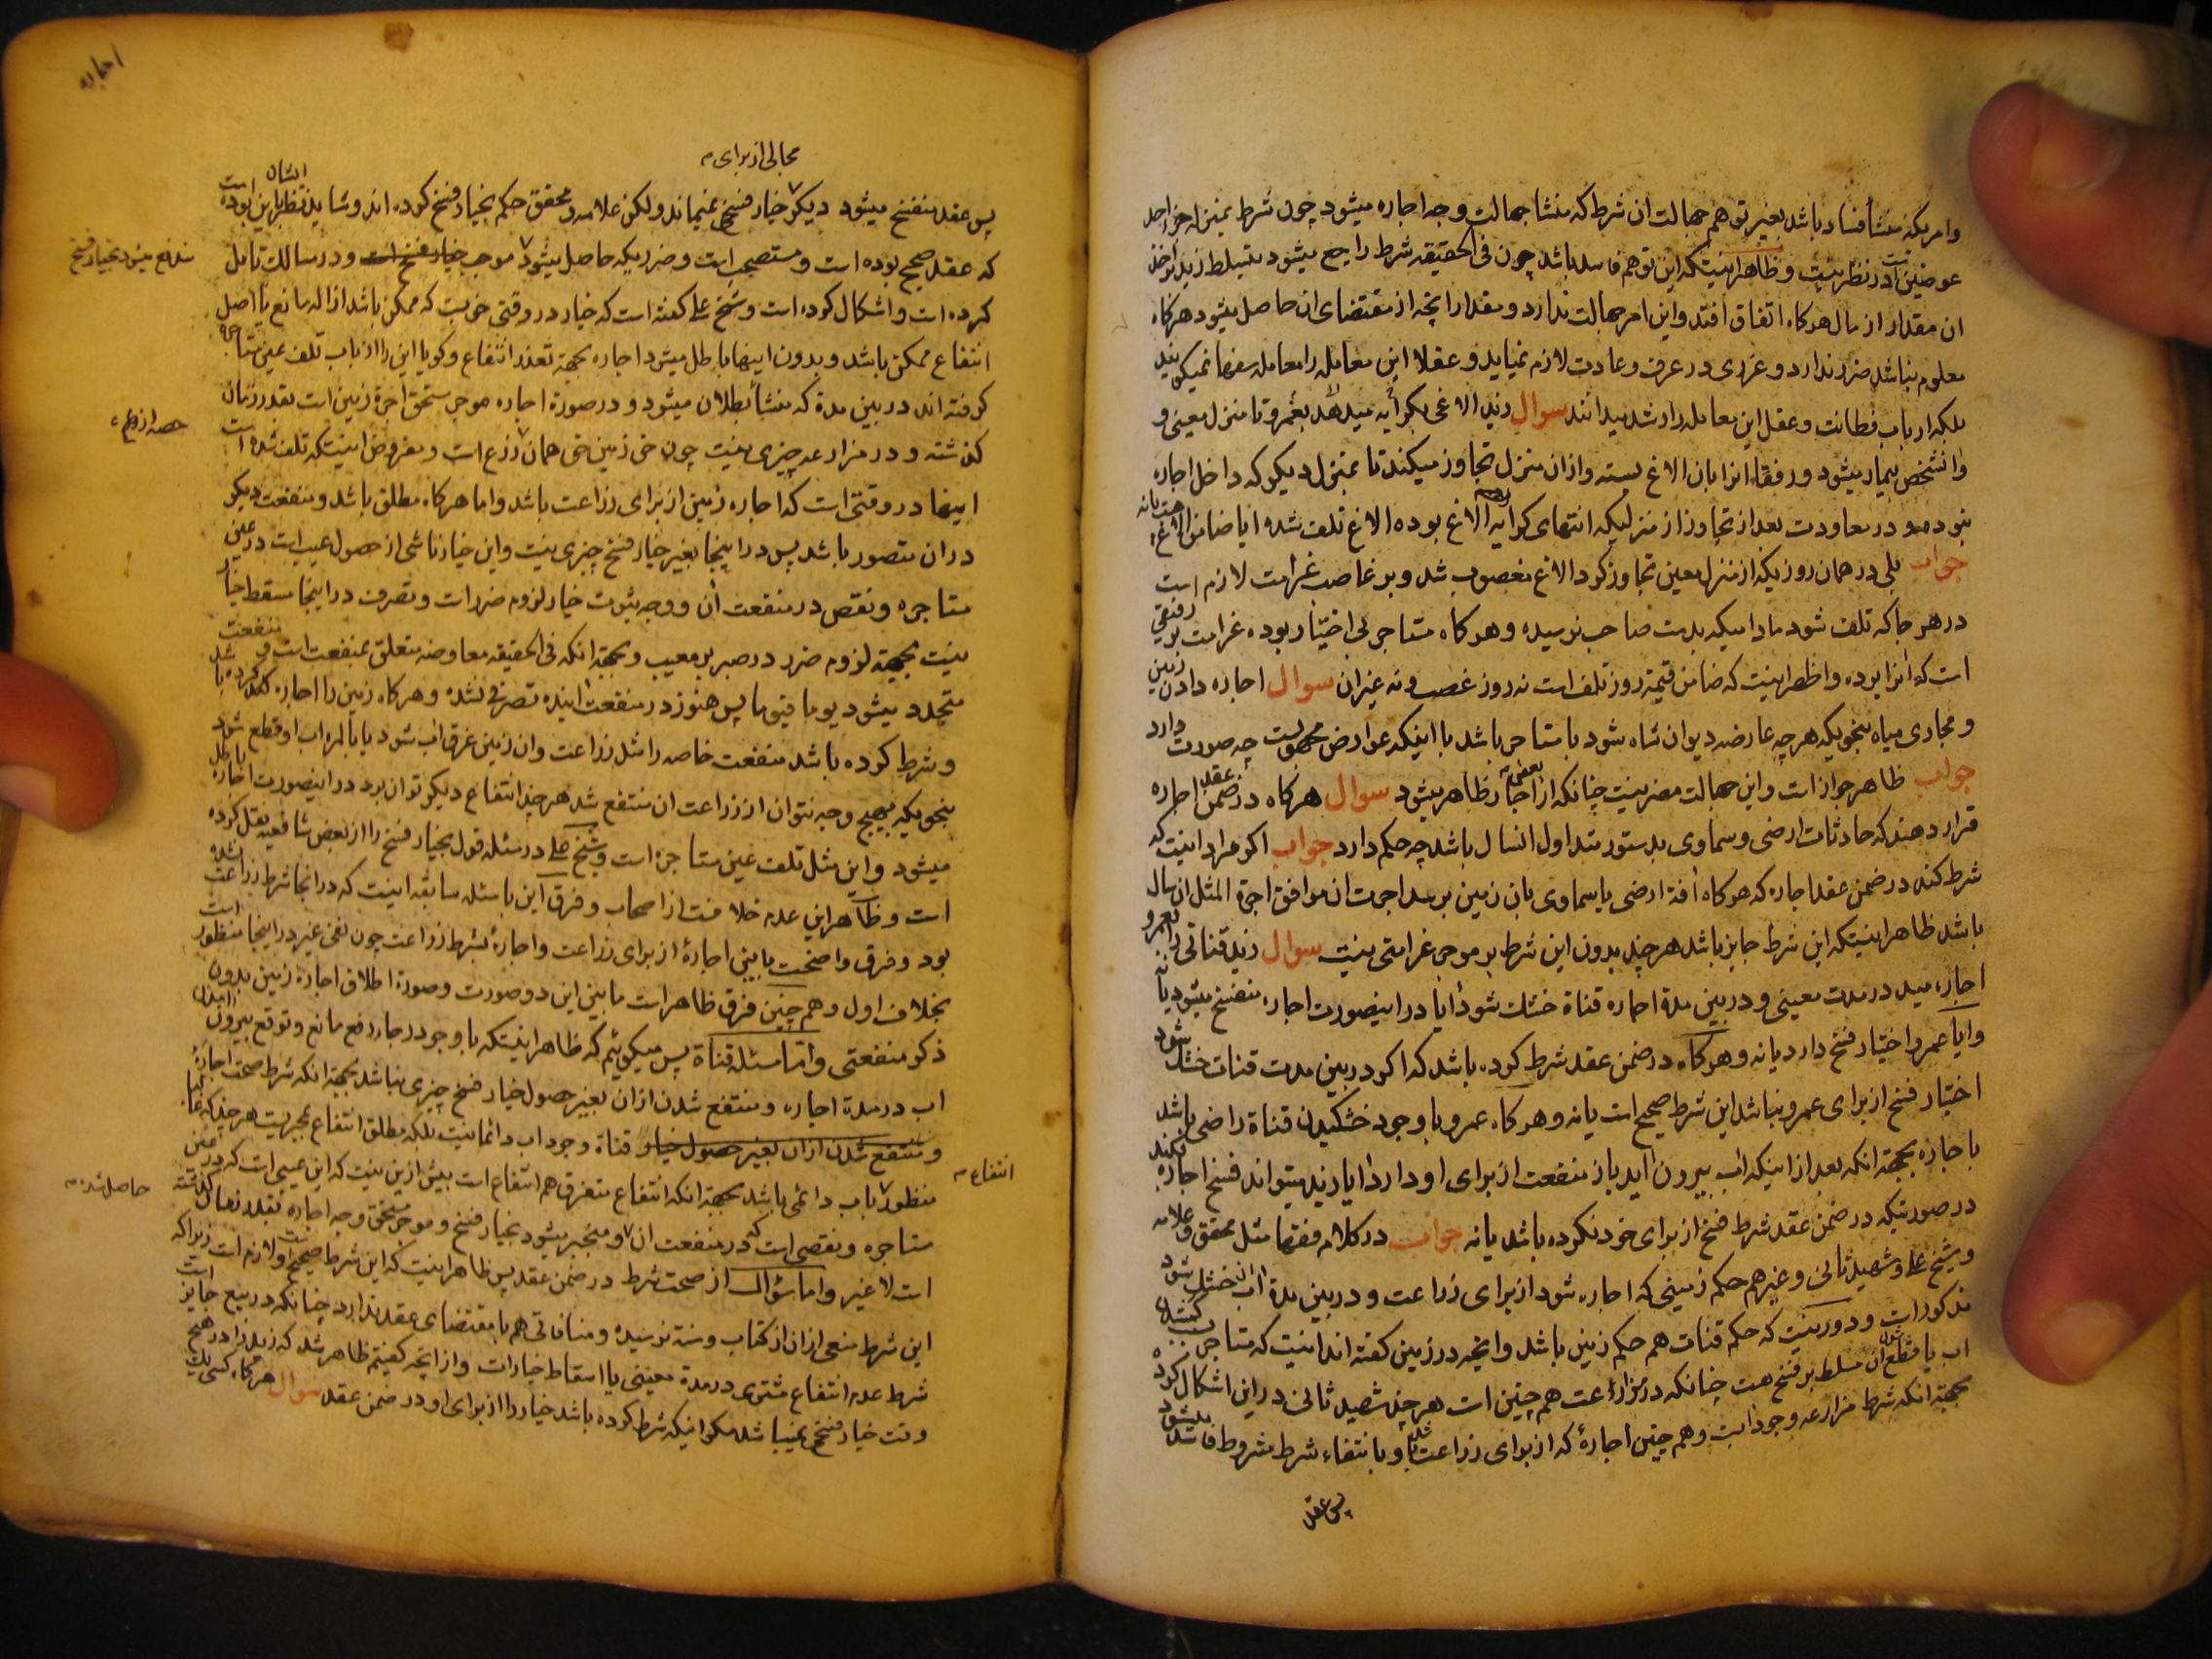 وامریکه منشأ فساد باشد بغیر توهم جهالت آن شرط که منشا جهالت وجه اجاره میشود چون شرط بمنزله جزء احد
عوضین است در نظر نیست و ظاهر اینست که این توهم فاسد باشد چون فی الحقیقه شرط راجع میشود بتسلط زید بر اخذ
ان مقدار از مال هر کاه اتفاق افتد واین امر جهالت ندارد و مقدار انچه از مقتضای ان حاصل میشود هر کاه
معلوم نباشد ضرر ندارد و غرری در عرف و عادت لازم نمیاید و عقلا این معامله را معامله سفها نمیکویند
بلکه ارباب فطانت و عقل این معامله را رشد میدانند سوال زید الاغی بکرایه میدهد بعمرو تا منزل معینی و
وانشخص بیمار میشود و رفقاء انرا بان الاغ بسته و از ان منزل تجاوز میکنند تا بمنزل دیکر که داخل اجاره
نبوده و در معاودت بعد از تجاوز از منزلیکه انتهای کرایه الاغ بوده الاغ تلف شده ایا ضامن الاغ هست یا نه
جواب بلی در همان روزیکه از منزل معین تجاوز کرد الاغ مغصوب شد و بر غاصب غرامت لازم است
در هر جا که تلف شود مادامیکه بدست صاحب نرسیده و هر کاه مستاجر بی اختیار بوده غرامت بر رفیقی
است که انرا برده و اظهر اینست که ضامن قیمة روز تلف است نه روز غصب و نه غیر ان سوال اجاره دادن زمین
و مجاری میاه بنحویکه هر چه عارضه دیوان شاه شود با مستاجر باشد با اینکه عوارض مجهولست چه صورت دارد
جواب ظاهر جواز است و این جهالت مضر نیست چنانکه از بعضی اخبار ظاهر میشود سوال هر کاه در ضمن عقد اجاره
قرار دهند که حادثات ارضی و سماوی بدستور متداول انسال باشد چه حکم دارد جواب اکر مراد اینست که
شرط کند در ضمن عقد اجاره که هر کاه افة ارضی یا سماوی بان زمین برسد اجرت ان موافق اجرة المثل ان سال
باشد ظاهر اینست که این شرط جایز باشد هر چند بدون این شرط بر موجر غرامتی نیست سوال زید قناتی را بعمرو
اجاره میدهد در مدت معینی و در بین مدة اجاره قناة خشک شود ایا در اینصورت اجاره منفسخ میشود یا نه
وایا عمرو اختیار فسخ دارد یا نه و هر کاه در ضمن عقد شرط کرده باشد که اکر در بین مدت قنات خشک شود
اختیار فسخ از برای عمرو نباشد این شرط صحیح است یا نه و هر کاه عمرو با وجود خشکیدن قناة راضی باشد
باجاره بجهة انکه بعد از اینکه اب بیرون اید باز منفعت از برای او دارد ایا زید میتواند فسخ اجاره بکند
در صورتیکه در ضمن عقد شرط فسخ از برای خود نکرده باشد یا نه جواب در کلام فقها مثل محقق و علامه
و شیخ علی و شهید ثانی و غیرهم حکم زمینی که اجاره شود از برای زراعت و در بین مدة اب ان خشک شود
مذکور است و دور نیست که حکم قنات هم حکم زمین باشد و انچه در زمین کفته اند اینست که مستاجر
اب یا قطع ان مسلط بر فسخ هست چنانکه در مزارعت هم چنین است هر چند شهید ثانی در این اشکال کرده
بجهة انکه شرط مزارعه وجود ابست و هم چنین اجارهٔ که از برای زراعت باشد و بانتفاء شرط مشروط فاسد میشود
پس عقد
اجاره
مجالی از برای
پس عقد منفسخ میشود دیکر خیار فسخ نمیماند ولکن علامه و محقق حکم بخیار فسخ کرده اند و شاید نظر ایشان باین بوده است
که عقد صحیح بوده است و مستصحب است و ضرریکه حاصل میشود موجب خیار فسخ است و در مسالک تامل
مندفع میشود بخیار فسخ
کرده است و اشکال کرده است و شیخ علی کفته است که خیار در وقتی خوبست که ممکن باشد ازاله مانع یا اصل
انتفاع ممکن باشد و بدون اینها باطل میشود اجاره بجهة تعذر انتفاع و کویا این را از باب تلف عین مستاجره
کرفته اند در بین مدة که منشأ بطلان میشود و در صورة اجاره موجر مستحق اجرة زمین است بقدر زمان
کذشته و در مزارعه چیزی نیست چون حق زمین حق همان زرع است و مفروض اینست که تلف شده است
حصه از زرع
اینها در وقتی است که اجاره زمین از برای زراعت باشد و اما هر کاه مطلق باشد و منفعت دیکر
در ان متصور باشد پس در اینجا بغیر خیار فسخ چیزی نیست و این خیار ناشی از حصول عیب است در عین
مستاجره و نقص در منفعت ان و وجه ثبوت خیار لزوم ضرر است و تصرف در اینجا مسقط خیار
نیست بجهة لزوم ضرر در صبر بر معیب و بجهة انکه فی الحقیقه معاوضه متعلق بمنفعت است و منفعت
متجدد میشود یوما فیوما پس هنوز در منفعت اینده تصرفی نشده و هر کاه زمین را اجاره کرده باشد
و شرط کرده باشد منفعت خاصه را مثل زراعت و ان زمین غرق اب شود یا بالمره اب او قطع شود
بنحویکه بهیچ وجه نتوان از زراعت ان منتفع شد هر چند انتفاع دیکر توان برد در اینصورت اجاره باطل
میشود و این مثل تلف عین مستاجره است و شیخ علی در مسئله قول بخیار فسخ را از بعض شافعیه نقل کرده
است و ظاهر این عدم خلافست از اصحاب و فرق این با مسئله سابقه اینست که در انجا شرط زراعت نشده
بود و فرق واضحست مابین اجارهٔ از برای زراعت و اجارهٔ بشرط زراعت چون نفی غیر در اینجا منظور است
بخلاف اول و هم چنین فرق ظاهر است مابین این دو صورت و صورة اطلاق اجارهٔ زمین بدون
ذکر منفعتی و اما مسئله قناة پس میکوئیم که ظاهر اینست که با وجود رجاء رفع مانع و توقع بیرون امدن
اب در مدة اجاره و منتفع شدن از ان بغیر حصول خیار فسخ چیزی نباشد بجهة انکه شرط صحت اجارهٔ
و منتفع شدن از ان بغیر حصول خیار قناة وجود اب دائما نیست بلکه مطلق انتفاع
منظور باب دائمی باشد بجهة انکه انتفاع متفرق هم انتفاع است بیش از این نیست که این عیبی است که در عین
انتفاع
حاصل شده
مستاجره و نقصی است که در منفعت ان و منجبر میشود بخیار فسخ و موجر مستحق وجه اجاره بقدر زمان کذشته
است لا غیر و اما سؤال از صحت شرط در ضمن عقد پس ظاهر اینست که این شرط صحیح است و لازم است زیرا که
این شرط منعی از ان از کتاب و سنة نرسیده و منافاتی هم با مقتضای عقد ندارد چنانکه در بیع جایز است
شرط عدم انتفاع مشتری در مدة معینی یا اسقاط خیارات و از انچه کفتیم ظاهر شد که زید را در هیچ
وقت خیار فسخ نمیباشد مکر اینکه شرط کرده باشد خیار را از برای او در ضمن عقد سوال هر کاه کسی یک